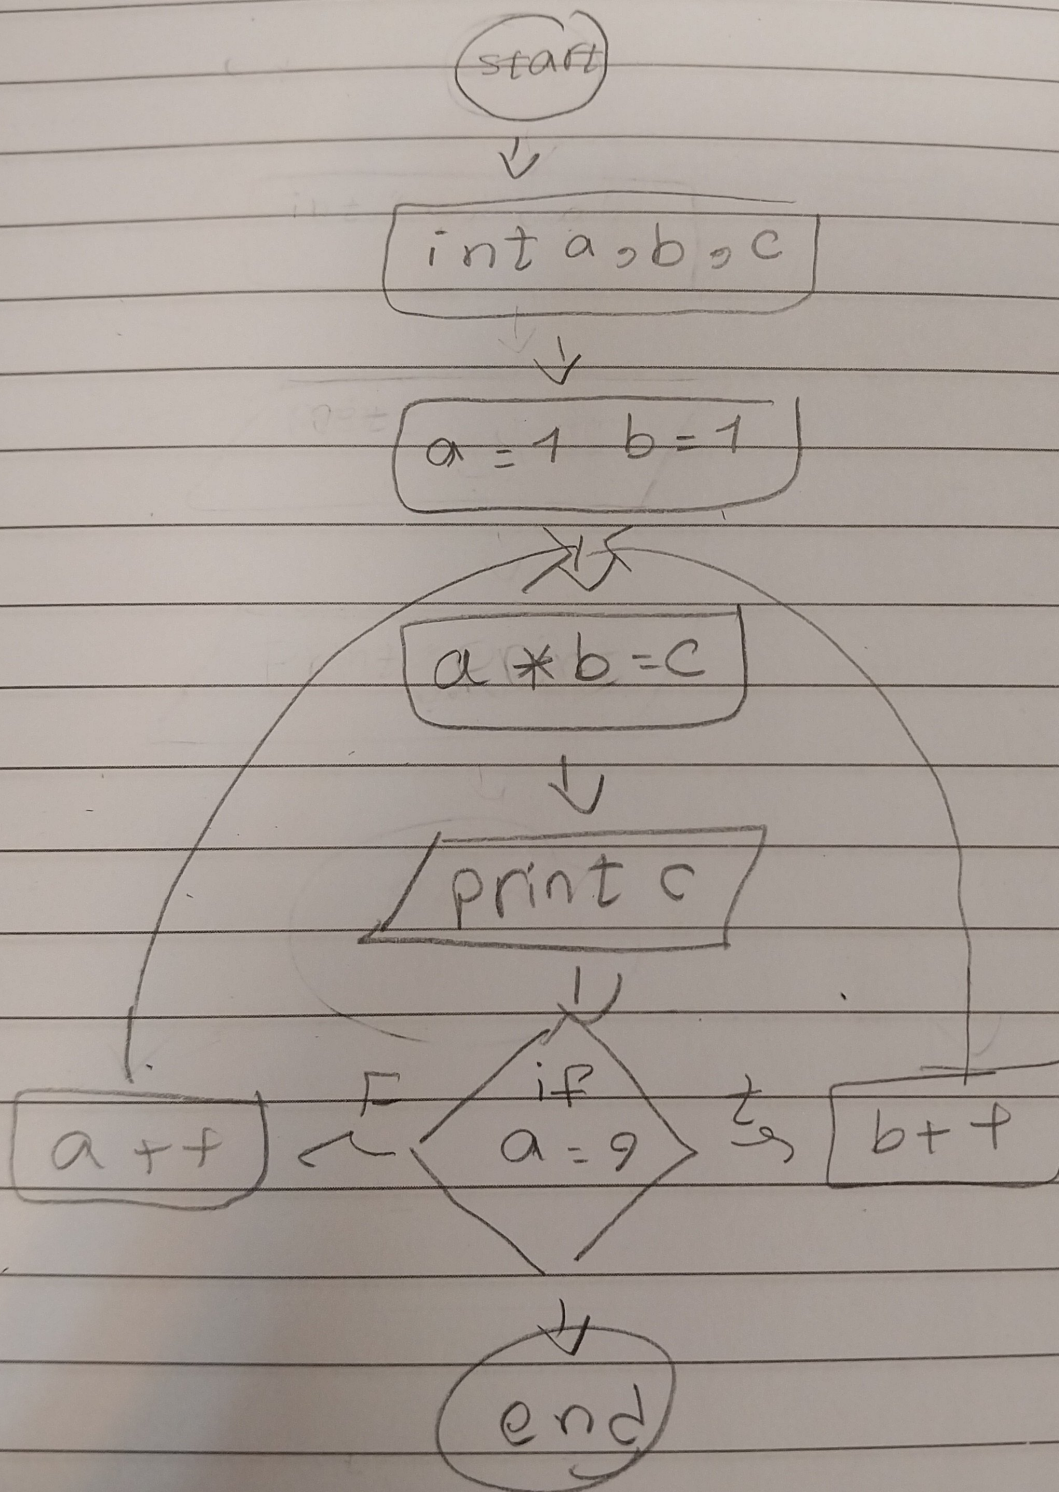 start
int a, b, c
a = 1 b = 1
a * b = c
print c
if
F t
a = 9
a++ b++
end